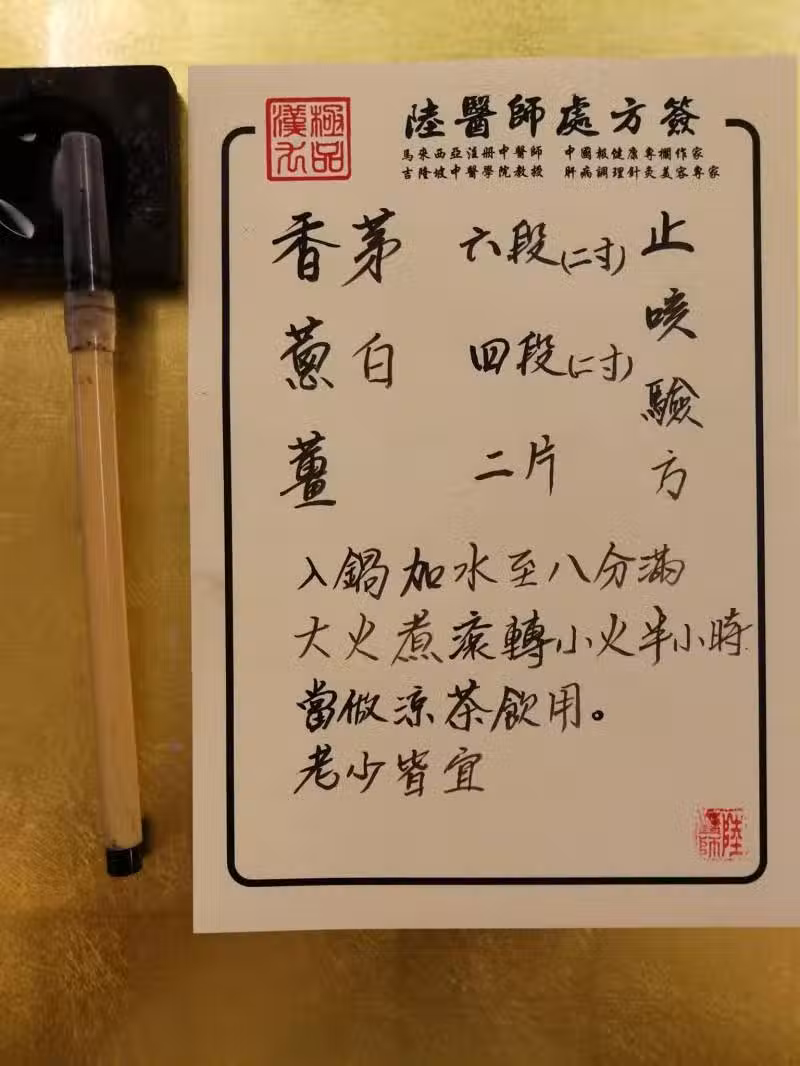 極品
漢方
陸醫師處方簽
馬來西亞注册中醫師 中國報健康專欄作家
吉隆坡中醫學院教授 肝病調理針灸美容專家
止咳驗方
香茅 六段(二寸)
蔥白 四段(二寸)
薑 二片
入鍋加水至八分滿
大火煮滾轉小火半小時
當做涼茶飲用。
老少皆宜
陸醫師